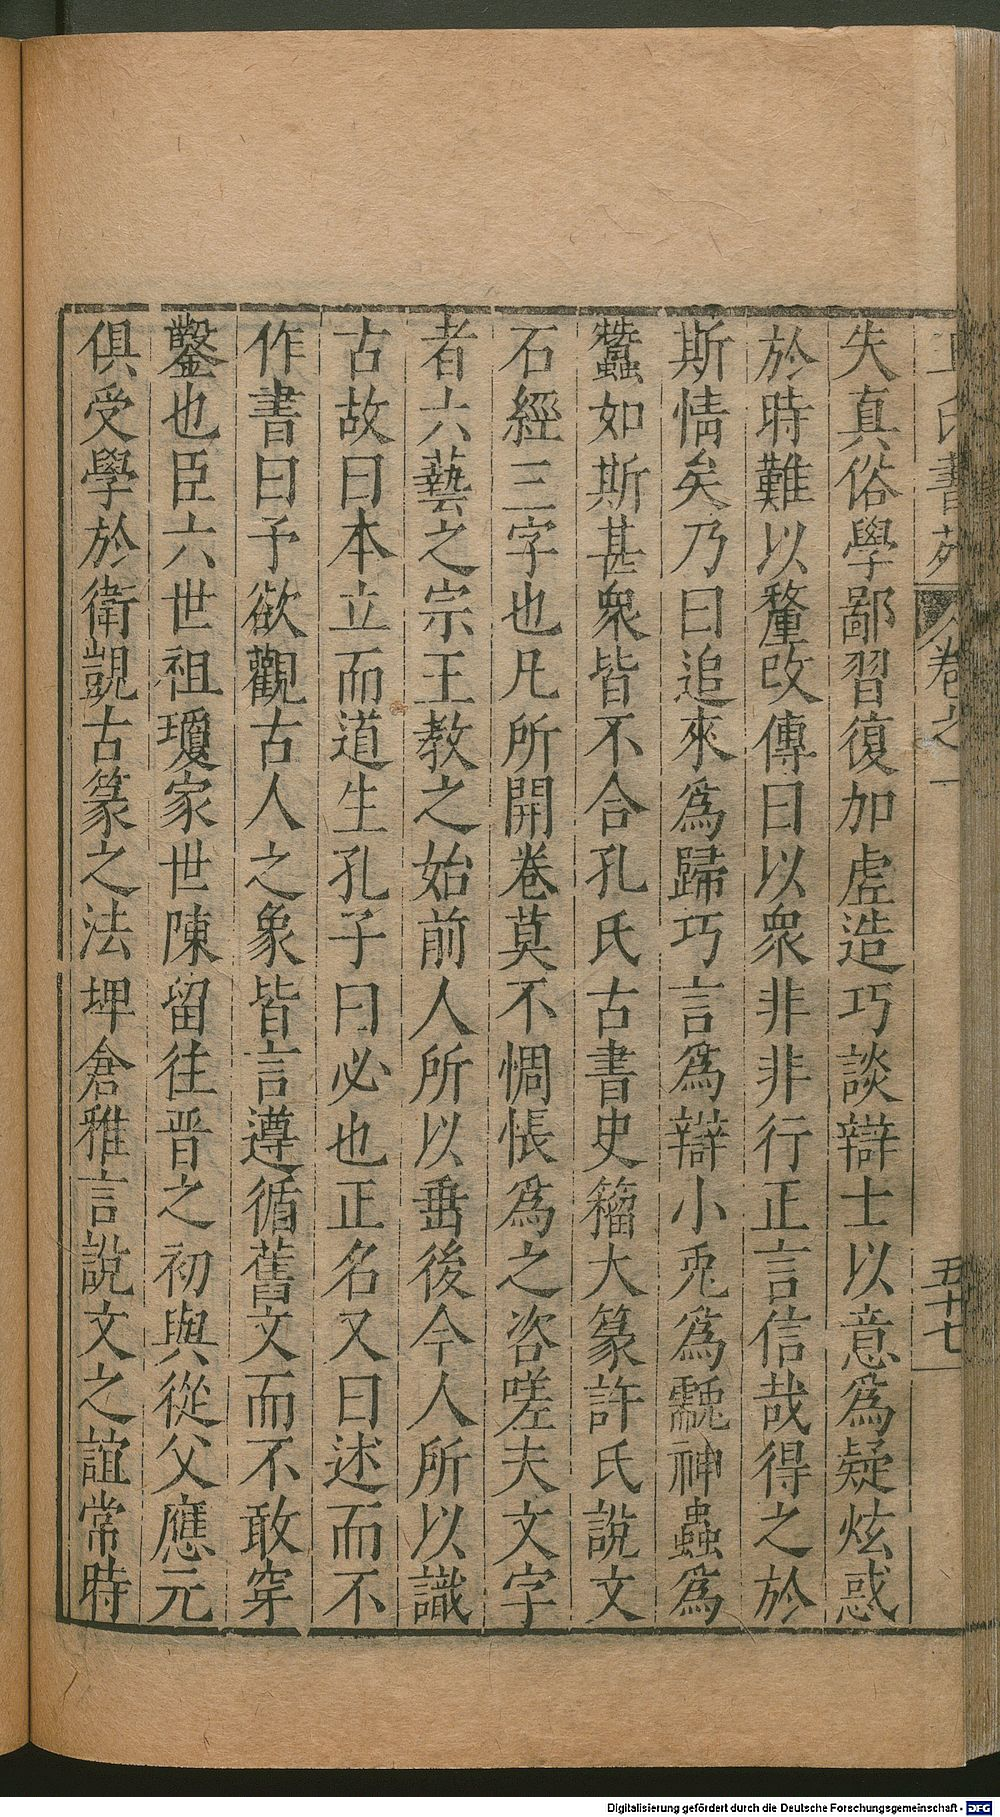 王氏書苑 卷之一 五十七
失真俗學鄙習復加虛造巧談辯士以意爲疑炫惑
於時難以釐改傳曰以衆非非行正言信哉得之於
斯情矣乃曰追來爲歸巧言爲辯小兎爲䨲神蟲爲
蠶如斯甚衆皆不合孔氏古書史籀大篆許氏說文
石經三字也凡所開卷莫不惆悵爲之咨嗟夫文字
者六藝之宗王教之始前人所以垂後今人所以識
古故曰本立而道生孔子曰必也正名又曰述而不
作書曰予欲觀古人之象皆言遵循舊文而不敢穿
鑿也臣六世祖瓊家世陳留往晋之初與從父應元
俱受學於衛覬古篆之法埤倉雅言說文之誼常時
Digitalisierung gefördert durch die Deutsche Forschungsgemeinschaft - DFG